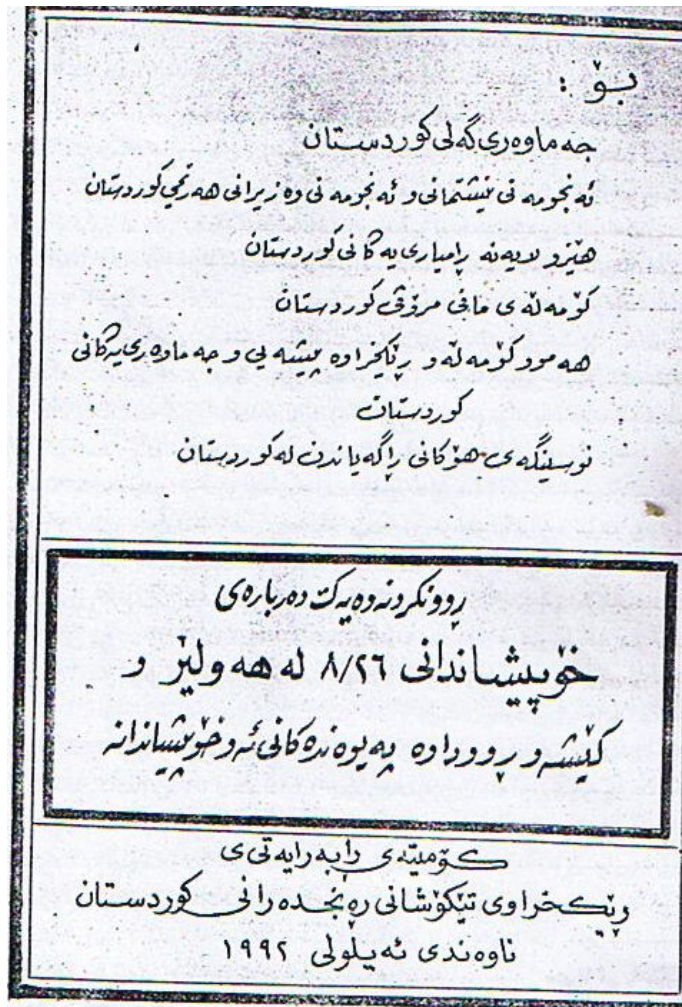 بۆ :
جه ماوه ری گه لی کوردستان
ئه نجومه نی نیشتمانی و ئه نجومه نی وه زیرانی هه رێمی کوردستان
هێزو لایه نه ڕامیاری یه کانی کوردستان
کۆمه ڵه ی مافی مرۆڤی کوردستان
هه موو کۆمه ڵه و رێکخراوه پیشه یی و جه ماوه ری یه کانی
کوردستان
نوسینگه ی هۆکانی ڕاگه یاندن له کوردستان
ڕوونکردنه وه یه ک ده رباره ی
خۆپیشاندانی ٨/٢٦ له هه ولێر و
کێشه و ڕووداوه په یوه نده کانی ئه و خۆپیشاندانه
کۆمیته ی ڕابه رایه تی ی
ڕێکخراوی تێکۆشانی ڕه نجده رانی کوردستان
ناوه ندی ئه یلولی ١٩٩٢